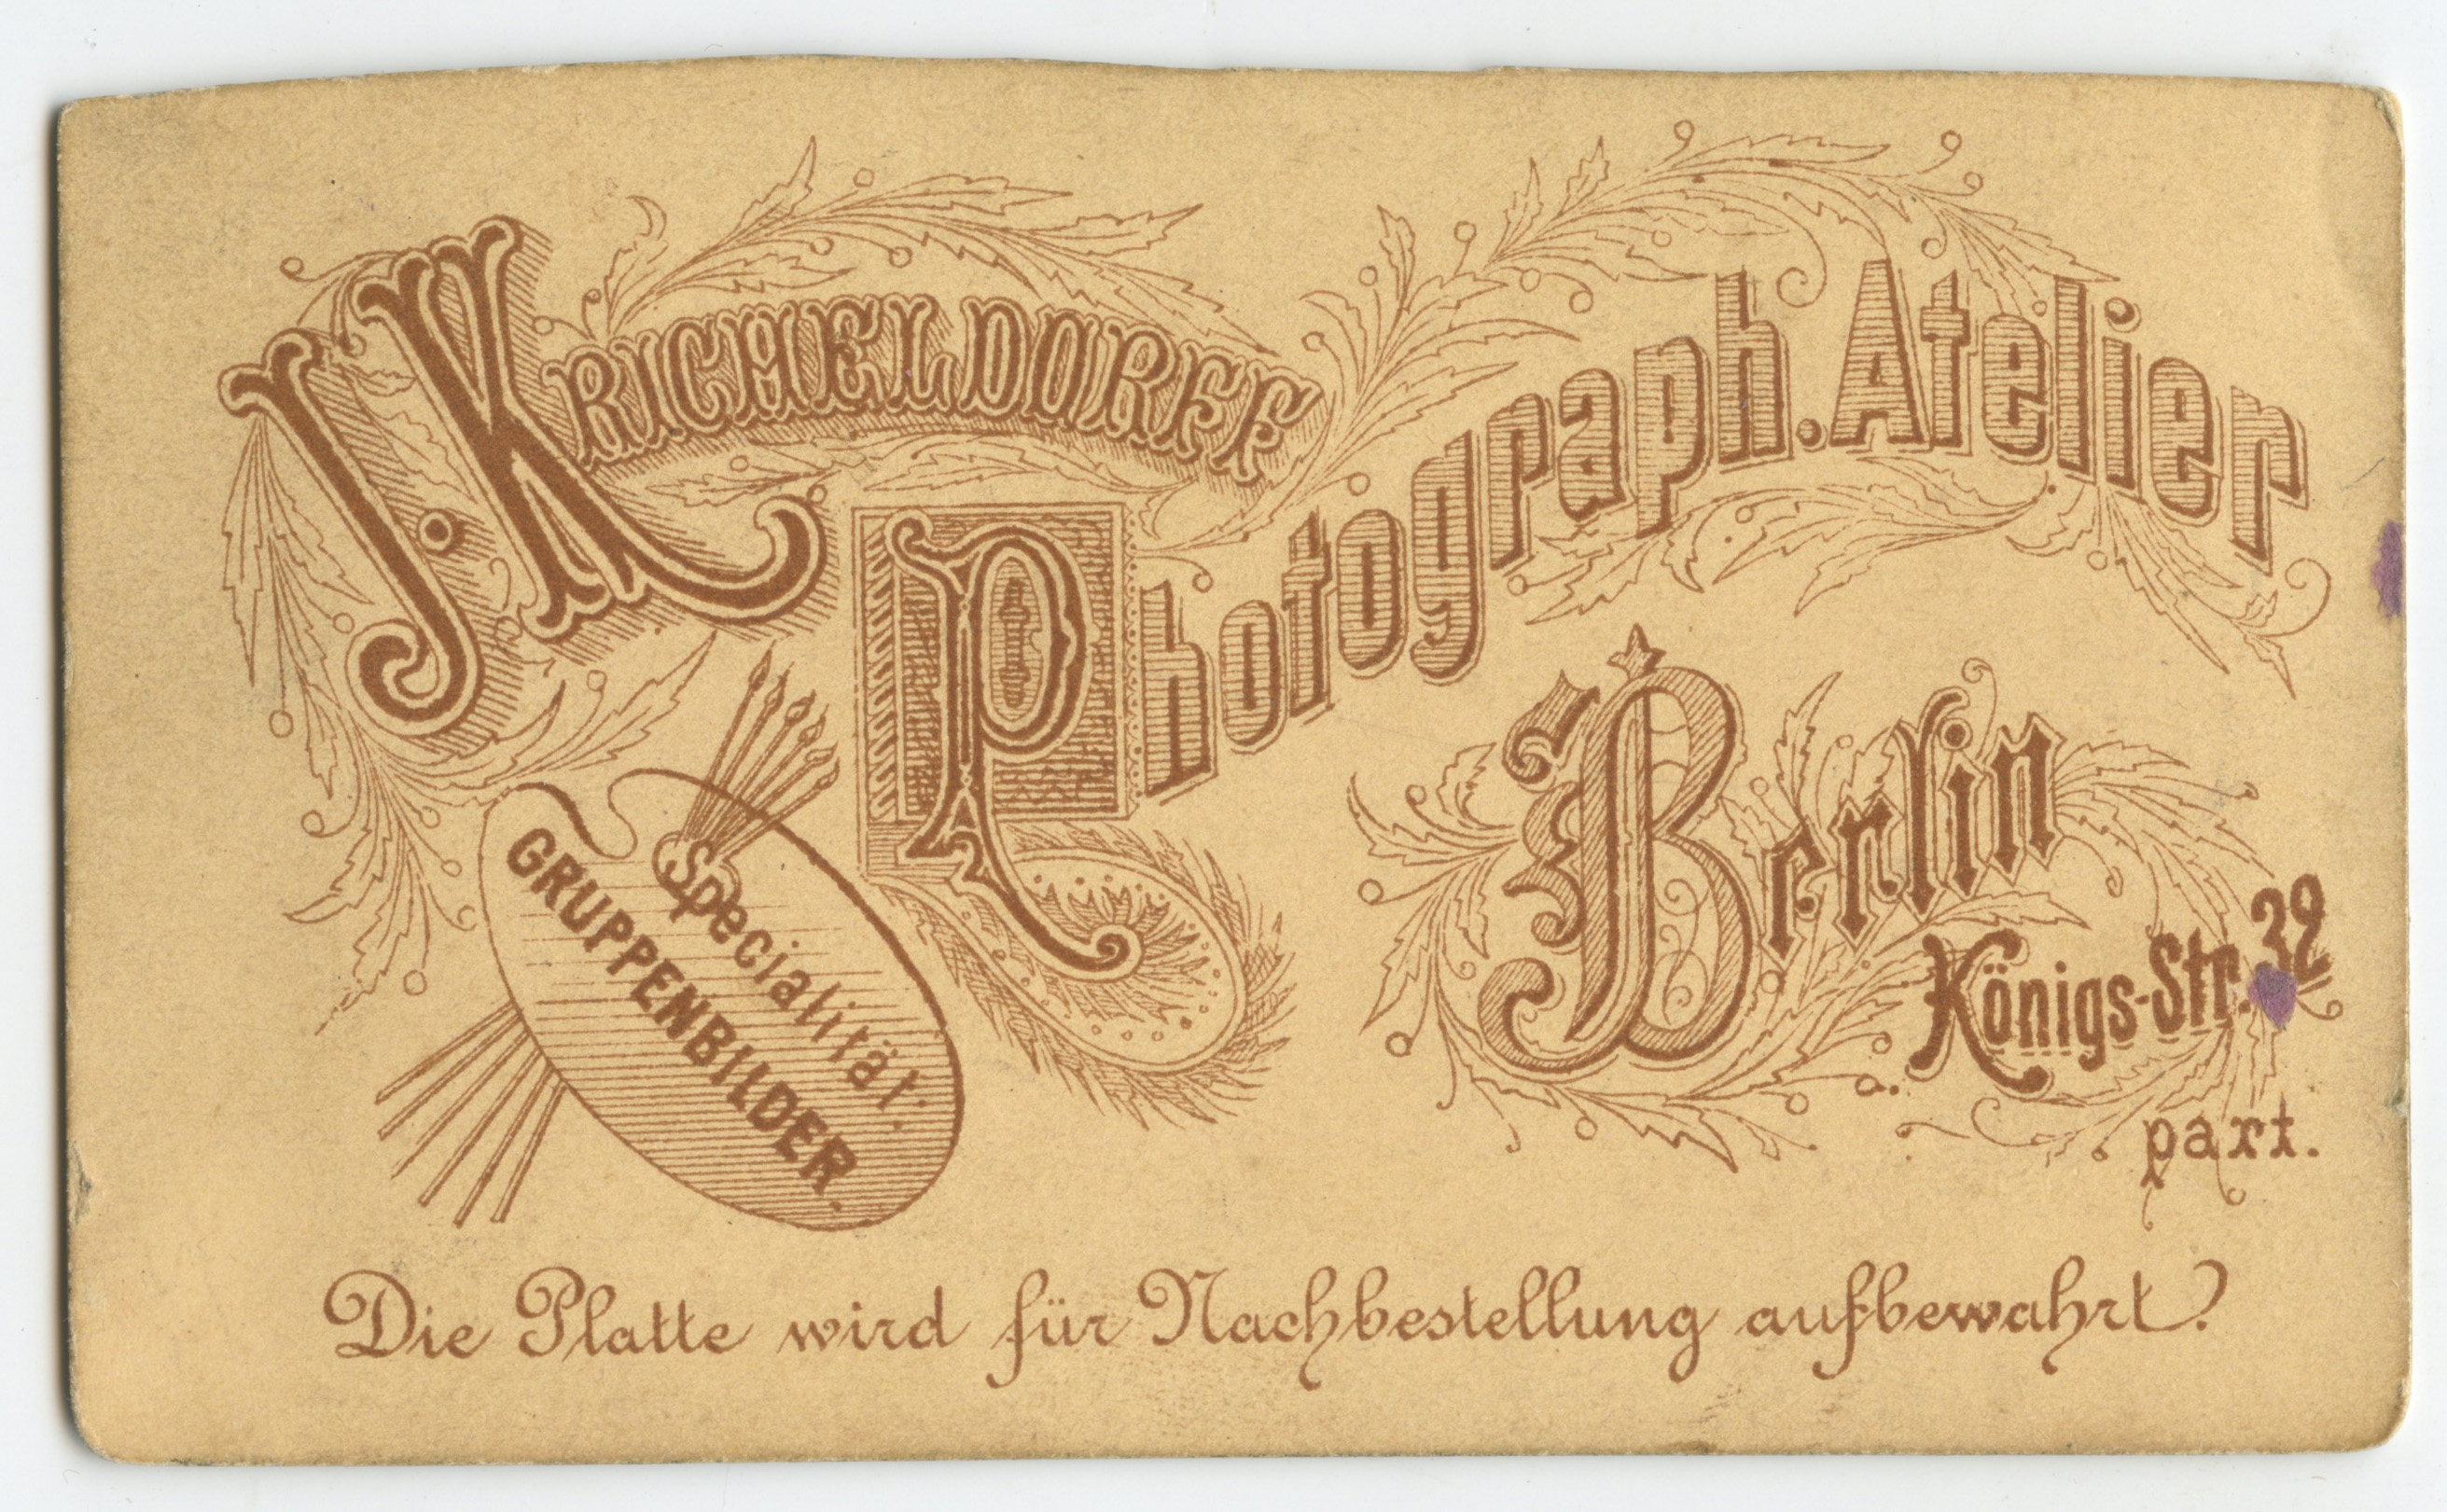 J. KRICHELDORFF
Photograph. Atelier
Berlin
Königs-Str. 32
part.
Specialität:
GRUPPENBILDER.
Die Platte wird für Nachbestellung aufbewahrt.